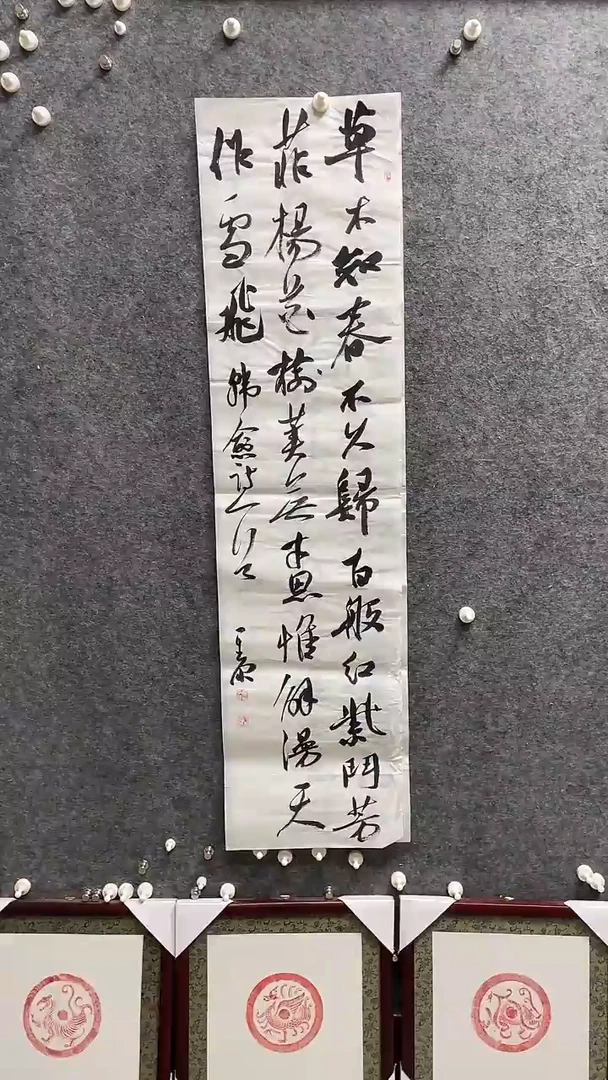 草木知春不久歸百般紅紫鬥芳
菲楊花榆莢無才思惟解漫天
作雪飛 韓愈詩